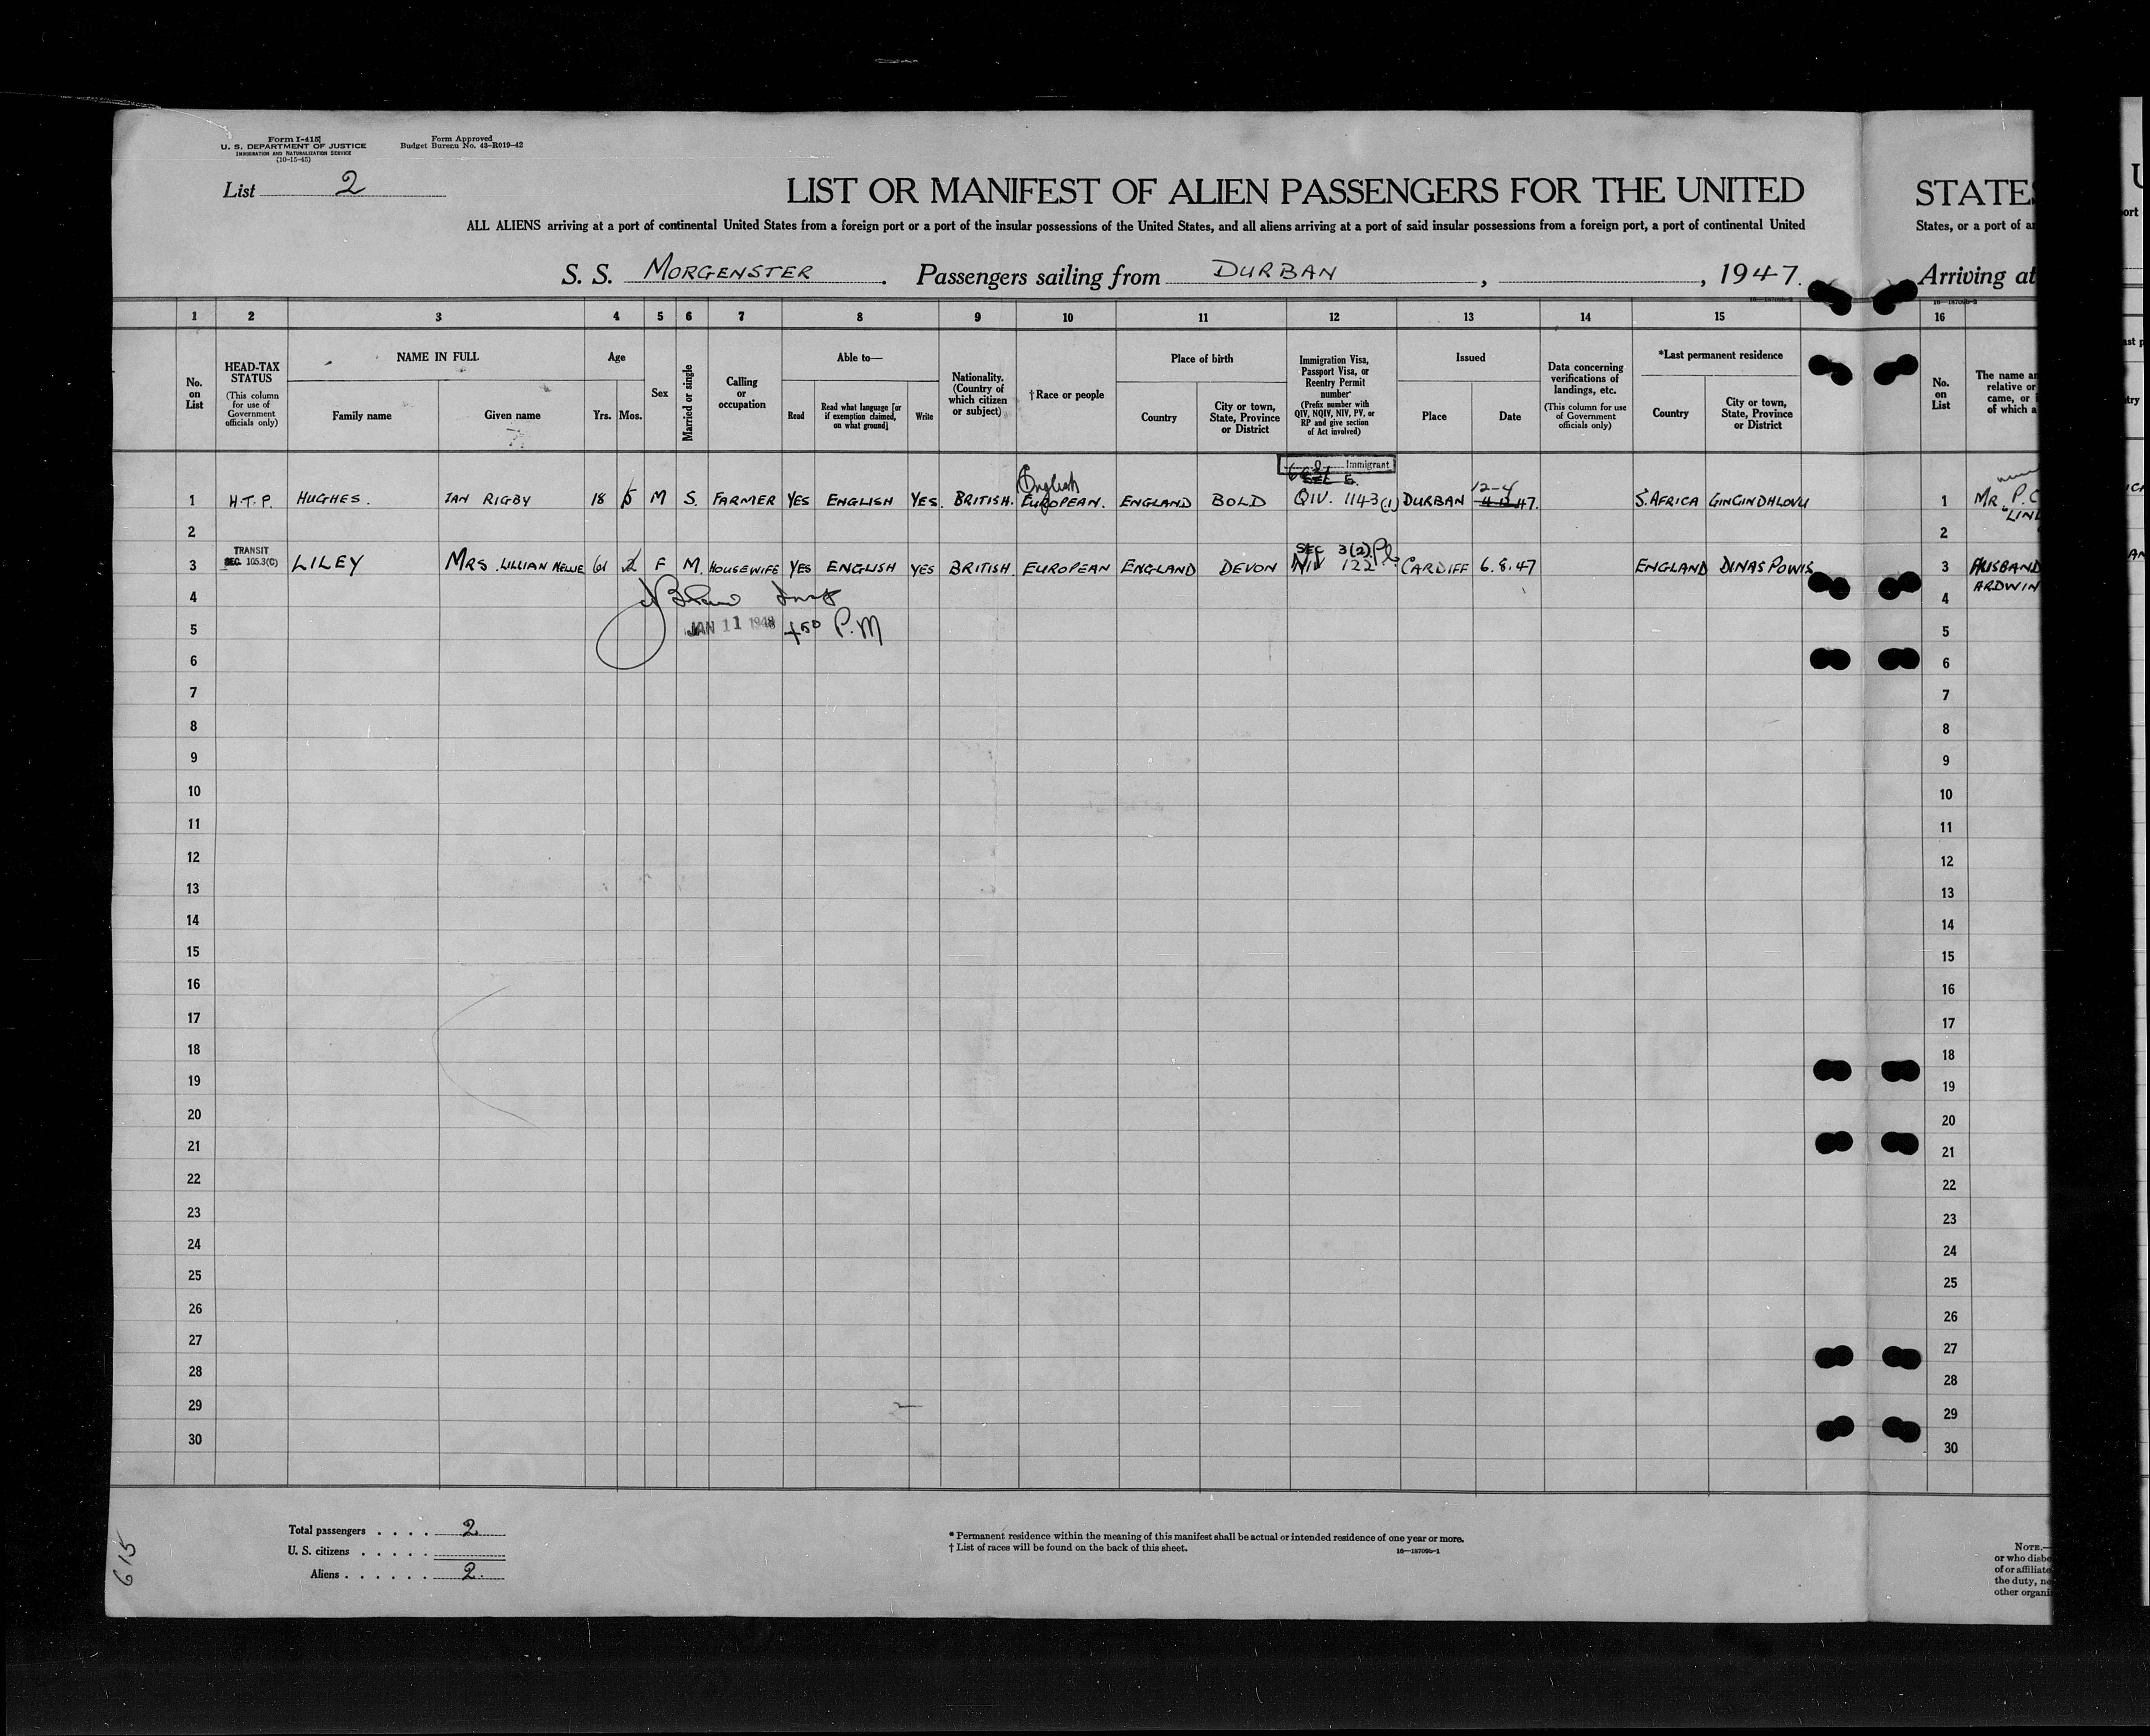 Form I-415
U. S. DEPARTMENT OF JUSTICE
IMMIGRATION AND NATURALIZATION SERVICE
(10-15-45)
Form Approved
Budget Bureau No. 43-R019-42
List 2
LIST OR MANIFEST OF ALIEN PASSENGERS FOR THE UNITED STATES
ALL ALIENS arriving at a port of continental United States from a foreign port or a port of the insular possessions of the United States, and all aliens arriving at a port of said insular possessions from a foreign port, a port of continental United States, or a port of
S. S. MORGENSTER. Passengers sailing from DURBAN, , 1947.
Arriving at
1 2 3 4 5 6 7 8 9 10 11 12 13 14 15 16
No. on List
HEAD-TAX STATUS
(This column for use of Government officials only)
NAME IN FULL
Family name
Given name
Age
Yrs.
Mos.
Sex
Married or single
Calling or occupation
Able to—
Read
Read what language [or if exemption claimed, on what ground]
Write
Nationality. (Country of which citizen or subject)
†Race or people
Place of birth
Country
City or town, State, Province or District
Immigration Visa, Passport Visa, or Reentry Permit number
(Prefix number with QIV, NQIV, NIV, PV, or RP and give section of Act involved)
Issued
Place
Date
Data concerning verifications of landings, etc.
(This column for use of Government officials only)
*Last permanent residence
Country
City or town, State, Province or District
No. on List
The name
relative or
came, or
of which a
Immigrant
English
12-4
1 H.T.P. HUGHES. IAN RIGBY 18 5 M S. FARMER YES ENGLISH YES. BRITISH. EUROPEAN. ENGLAND BOLD QIV. 1143(1) DURBAN 47. S. AFRICA GINGINDHLOVU 1 MR P.C
2 2
TRANSIT
SEC. 105.3(C)
SEC 3(2)
3 LILEY MRS. LILLIAN NELLIE 61 2 F M. HOUSEWIFE YES ENGLISH YES BRITISH. EUROPEAN ENGLAND DEVON NIV 122 CARDIFF 6.8.47 ENGLAND DINAS POWIS 3 HUSBAND
4 4 ARDWIN
5 JAN 11 1948 P.M 5
6 6
7 7
8 8
9 9
10 10
11 11
12 12
13 13
14 14
15 15
16 16
17 17
18 18
19 19
20 20
21 21
22 22
23 23
24 24
25 25
26 26
27 27
28 28
29 29
30 30
Total passengers . . . . 2
U. S. citizens . . . . .
Aliens . . . . . . 2.
* Permanent residence within the meaning of this manifest shall be actual or intended residence of one year or more.
† List of races will be found on the back of this sheet.
NOTE.—
or who
of or affiliate
the duty,
other
615